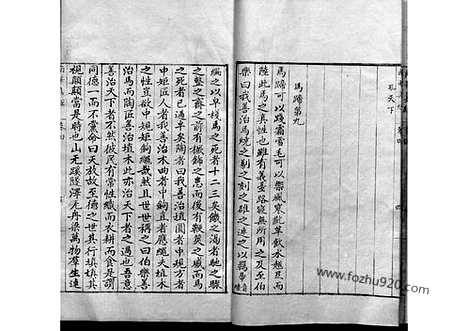 孔天下
馬蹄第九
馬蹄可以踐霜雪毛可以禦風寒齕草飲水翹足而
陸此馬之真性也雖有義臺路寢無所用之及至伯
樂曰我善治馬燒之剔之刻之雒之連之以羈馽
編之以皁棧馬之死者十二三矣饑之渴之馳之驟
之整之齊之前有橛飾之患而後有鞭筴之威而馬
之死者已過半矣陶者曰我善治埴圓者中規方者
中矩匠人曰我善治木曲者中鉤直者應繩夫埴木
之性豈欲中規矩鉤繩哉然且世世稱之曰伯樂善
治馬而陶匠善治埴木此亦治天下者之過也吾意
善治天下者不然彼民有常性織而衣耕而食是謂
同德一而不黨命曰天放故至德之世其行填填其
視顛顛當是時也山無蹊隧澤无舟梁萬物群生連
www.fozhu920.com